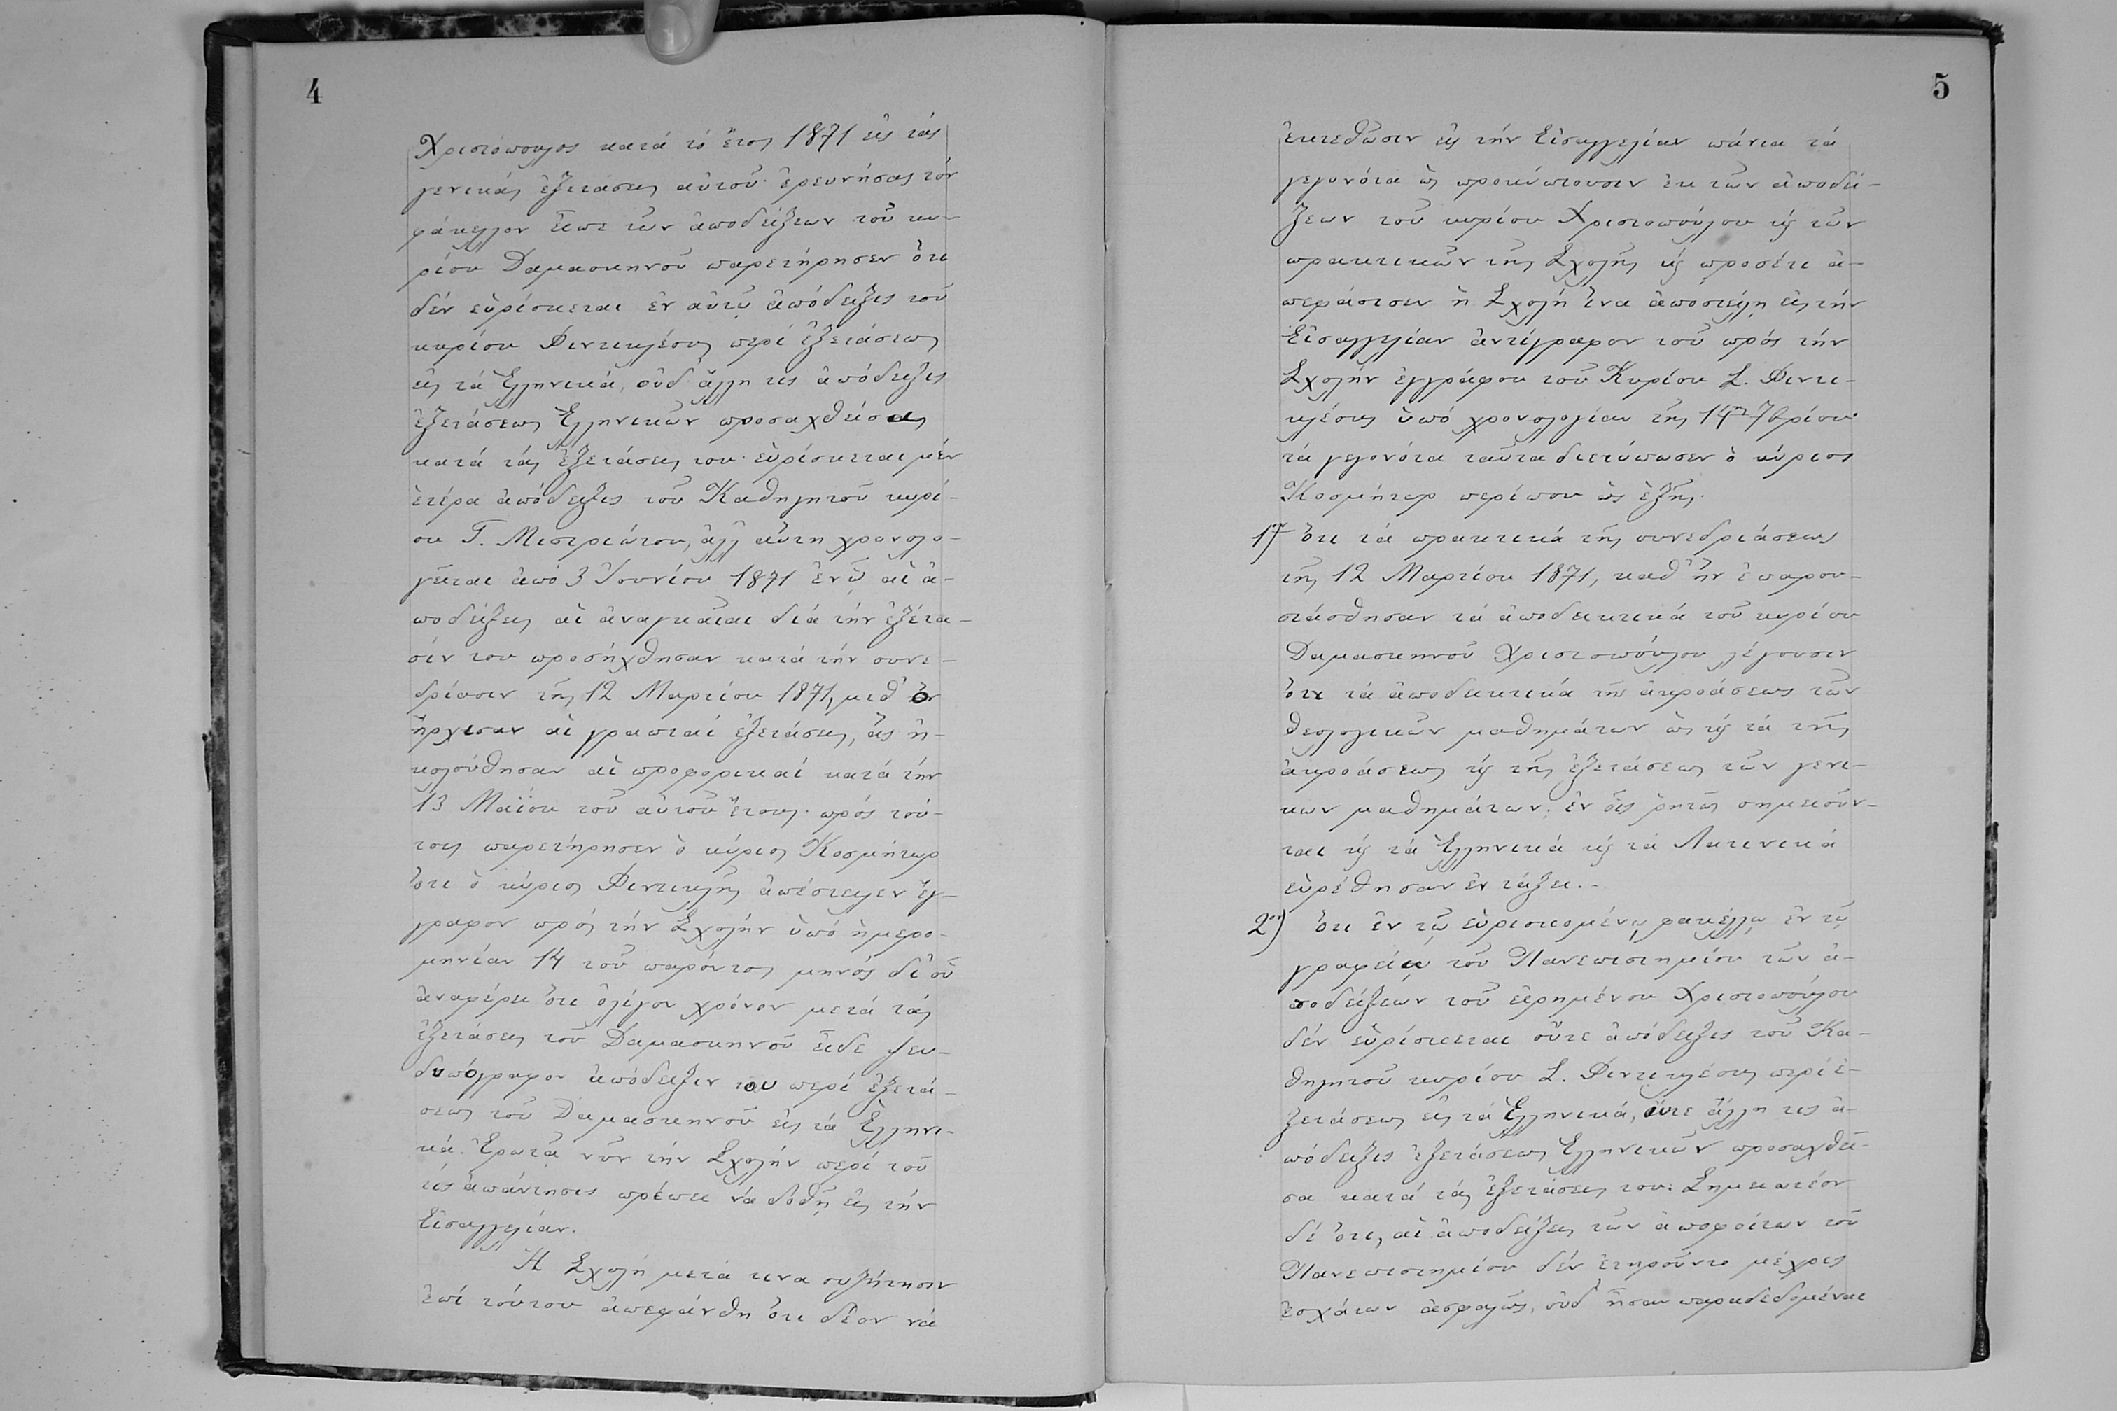 4
Χριστόπουλος κατά τό ἔτος 1871 εἰς τάς
γενικάς ἐξετάσεις αὑτοῦ· ἐρευνήσας τόν
φάκελλον εἶπε τῶν ἀποδείξεων τοῦ κυ-
ρίου Δαμασκηνοῦ παρετήρησεν ὅτι
δέν εὑρίσκεται ἐν αὐτῷ ἀπόδειξις τοῦ
κυρίου Φιντικλέους περί ἐξετάσεως
εἰς τά Ἑλληνικά, οὐδ' ἄλλη τις ἀπόδειξις
ἐξετάσεως Ἑλληνικῶν προσαχθείσας
κατά τάς ἐξετάσεις του· εὑρίσκεται μέν
ἑτέρα ἀπόδειξις τοῦ Καθηγητοῦ κυρί-
ου Γ. Μιστριώτου, ἀλλ' αὕτη χρονολο-
γεῖται ἀπό 3 Ἰουνίου 1871 ἐνῷ αἱ ἀ-
ποδείξεις αἱ ἀναγκαῖαι διά τήν ἐξέτα-
σίν του προσήχθησαν κατά τήν συνε-
δρίασιν τῆς 12 Μαρτίου 1871, μεθ' ὅν
ἤρχισαν αἱ γραπταί ἐξετάσεις, ἅς ἠ-
κολούθησαν αἱ προφορικαί κατά τήν
13 Μαΐου τοῦ αὐτοῦ ἔτους· πρός τού-
τοις παρετήρησεν ὁ κύριος Κοσμήτωρ
ὅτι ὁ κύριος Φιντικλῆς ἀπέστειλεν ἔγ-
γραφον πρός τήν Σχολήν ὑπό ἡμερο-
μηνίαν 14 τοῦ παρόντος μηνός δι' οὗ
ἀναφέρει ὅτι ὀλίγον χρόνον μετά τάς
ἐξετάσεις τοῦ Δαμασκηνοῦ εἶδε ψευ-
δυπόγραφον ἀπόδειξιν του περί ἐξετά-
σεως τοῦ Δαμασκηνοῦ εἰς τά Ἑλληνι-
κά. Ἐρωτᾷ νῦν τήν Σχολήν περί τοῦ
τίς ἀπάντησις πρέπει νά δοθῇ εἰς τήν
Εἰσαγγελίαν.
Ἡ Σχολή μετά τινα συζήτησιν
ἐπί τούτου ἀπεφάνθη ὅτι δέον νά
5
ἐκτεθῶσιν εἰς τήν Εἰσαγγελίαν πάντα τά
γεγονότα ὡς προκύπτουσιν ἐκ τῶν ἀποδεί-
ξεων τοῦ κυρίου Χριστοπούλου κ τῶν
πρακτικῶν τῆς Σχολῆς κ προσέτι ἀ-
πεφάσισεν ἡ Σχολή ἵνα ἀποστείλῃ εἰς τήν
Εἰσαγγελίαν ἀντίγραφον τοῦ πρός τήν
Σχολήν ἐγγράφου τοῦ Κυρίου Σ. Φιντι-
κλέους ὑπό χρονολογίαν τῆς 14ης 7βρίου
τά γεγονότα ταῦτα διετύπωσεν ὁ κύριος
Κοσμήτωρ περίπου ὡς ἑξῆς.
1ον) Ὅτι τά πρακτικά τῆς συνεδριάσεως
τῆς 12 Μαρτίου 1871, καθ' ἥν ἐπαρου-
σιάσθησαν τά ἀποδεικτικά τοῦ κυρίου
Δαμασκηνοῦ Χριστοπούλου λέγουσιν
ὅτι τά ἀποδεικτικά τῆς ἀκροάσεως τῶν
θεολογικῶν μαθημάτων ὡς κ τά τῆς
ἀκροάσεως κ τῆς ἐξετάσεως τῶν γενι-
κῶν μαθημάτων, ἐν οἷς ῥητῶς σημειοῦν-
ται κ τά Ἑλληνικά κ τά Λατινικά
εὑρέθησαν ἐν τάξει.-
2ον) Ὅτι ἐν τῷ εὑρισκομένῳ φακέλλῳ ἐν τῷ
γραφείῳ τοῦ Πανεπιστημίου τῶν ἀ-
ποδείξεων τοῦ εἰρημένου Χριστοπούλου
δέν εὑρίσκεται οὔτε ἀπόδειξις τοῦ Κα-
θηγητοῦ κυρίου Σ. Φιντικλέους περί ἐ-
ξετάσεως εἰς τά Ἑλληνικά, οὔτε ἄλλη τις ἀ-
πόδειξις ἐξετάσεως Ἑλληνικῶν προσαχθεῖ-
σα κατά τάς ἐξετάσεις του. Σημειωτέον
δέ ὅτι, αἱ ἀποδείξεις τῶν ἀποφοίτων τοῦ
Πανεπιστημίου δέν ἐτηροῦντο μέχρις
ἐσχάτων ἀσφαλῶς, οὐδ' ἦσαν παραδεδομέναι